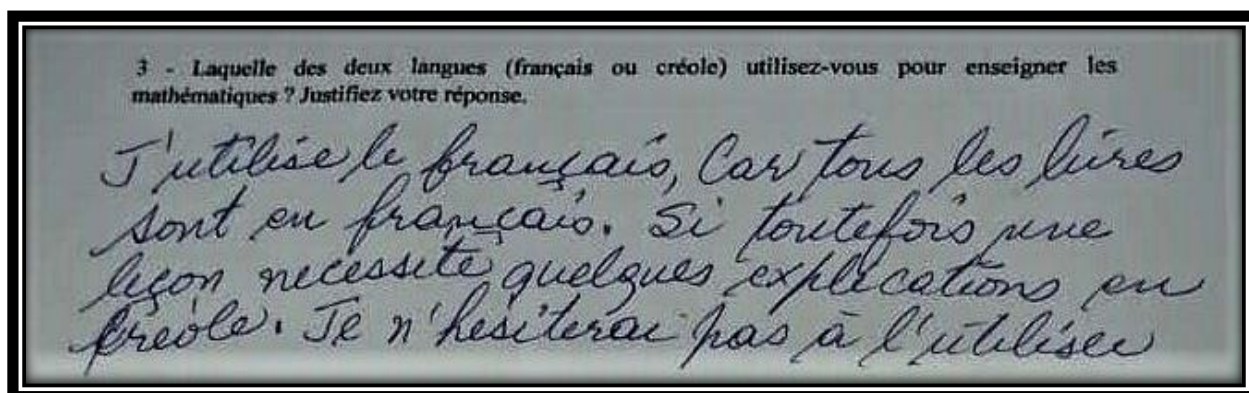 3 - Laquelle des deux langues (français ou créole) utilisez-vous pour enseigner les
mathématiques ? Justifiez votre réponse.
J'utilise le français, Car tous les livres
sont en français. Si toutefois une
leçon necessite quelques explications en
créole. Je n'hesiterai pas à l'utiliser